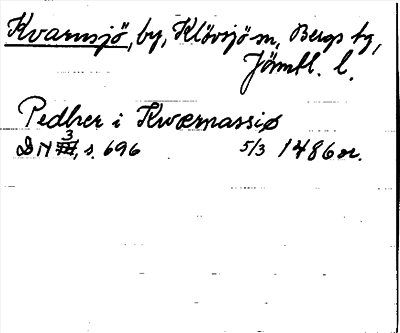 Kvarnsjö, by, Klövsjö sn, Bergs tg,
Jämtl. l.
Pedher i Kwærnassiø
DN 3, s. 696 5/3 1486 or.